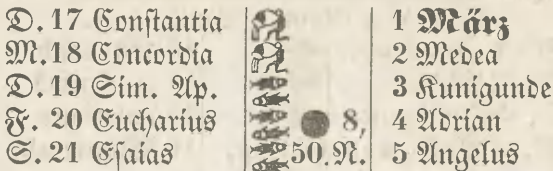 D. 17 Conſtantia 1 März
M. 18 Concordia 2 Medea
D. 19 Sim. Ap. 3 Kunigunde
F. 20 Eucharius 8, 4 Adrian
S. 21 Eſaias 50. N. 5 Angelus